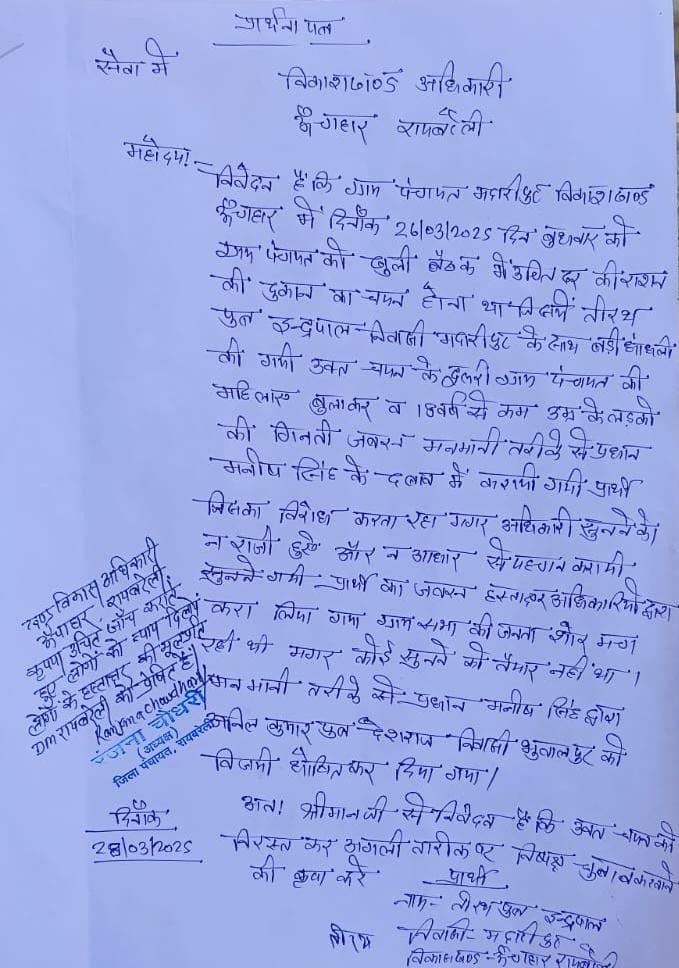 प्रार्थना पत्र
सेवा में
विकाशखण्ड अधिकारी
ऊँचाहार रायबरेली
महोदय!-
निवेदन है कि ग्राम पंचायत मदारीपुर विकाशखण्ड
ऊँचाहार में दिनाँक 26/03/2025 दिन बुधवार को
ग्राम पंचायत की खुली बैठक में उचित दर की राशन
की दुकान का चयन होना था जिसमें तीरथ
पुत्र इन्द्रपाल-निवासी मदारीपुर के साथ बड़ी धांधली
की गयी उक्त चयन के दूसरी ग्राम पंचायत की
महिलाए बुलाकर व 18 वर्ष से कम उम्र के लड़को
की गिनती जबरन मनमानी तरीके से प्रधान
मनीष सिंह के दबाव में करायी गयी प्रार्थी
जिसका विरोध करता रहा मगर अधिकारी सुनने को
न राजी हुए और न आधार से पहचान करायी
गयी प्रार्थी का जबरन हस्ताक्षर अधिकारियो द्वारा
करा लिया गया ग्राम सभा की जनता शोर मचा
रही थी मगर कोई सुनने को तैयार नहीं था।
मन मानी तरीके से प्रधान मनीष सिंह द्वारा
अनिल कुमार पुत्र देशराज निवासी भुवालपुर को
विजयी घोषित कर दिया गया।
अत! श्रीमान जी से निवेदन है कि उक्त चयन को
निरस्त कर अगली तारीक पर निष्पक्ष चुनाव करवाने
की कृपा करे
प्रार्थी
नाम- तीरथ पुत्र इन्द्रपाल
निवासी- मदारीपुर
विकाशखण्ड- ऊँचाहार रायबरेली
तीरथ
दिनाँक
28/03/2025
खण्ड विकास अधिकारी
ऊँचाहार, रायबरेली
कृपया उचित जाँच कराते
हुए लोगों को न्याय दिलायें
लोगों के हस्ताक्षर की मूलप्रति
DM रायबरेली को प्रेषित है।
Ranjana Chaudhary
रंजना चौधरी
(अध्यक्ष)
जिला पंचायत, रायबरेली